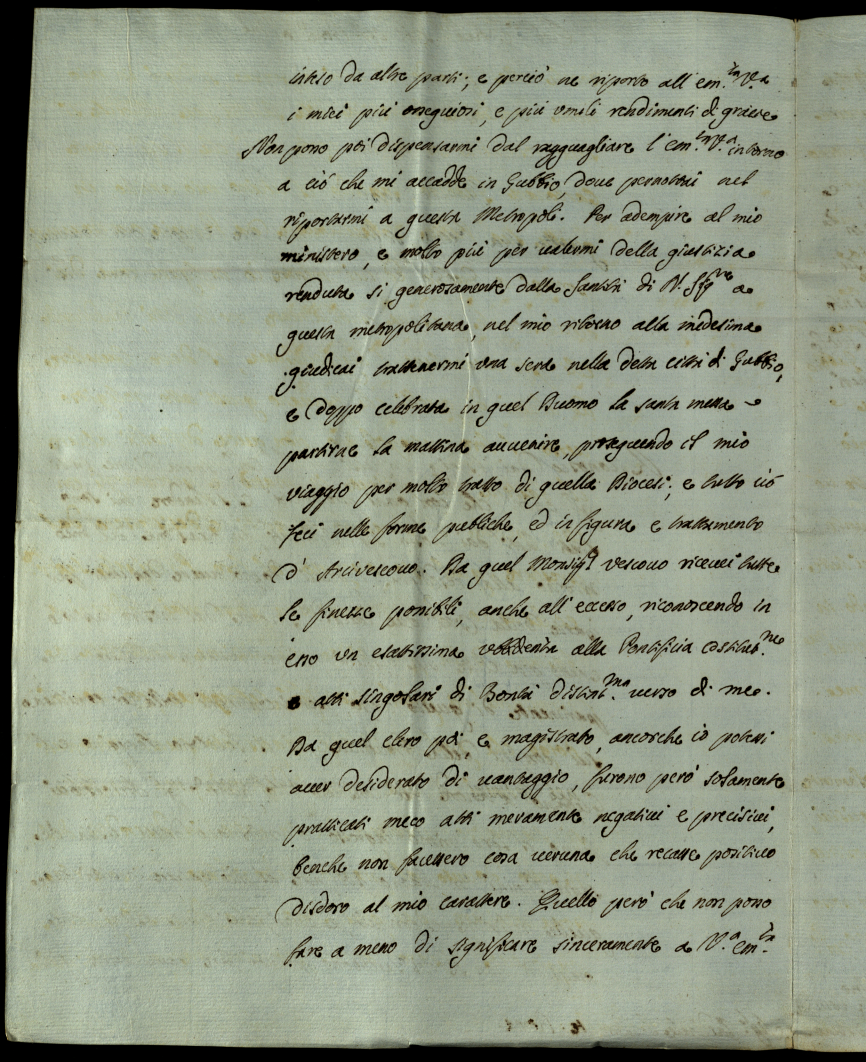 inteso da altre parti; e perciò ne riporto all'em.za V.a
i miei più ossequiosi, e più umili rendimenti di grazie
Non posso poi dispensarmi dal ragguagliare l'em.za V.a intorno
a ciò che mi accadde in Gubbio, doue pernottai nel
riportarmi a questa Metropoli. Per adempire al mio
ministero, e molto più per ualermi della giustizia
renduta si generosamente dalla Santità di N. Sig.re a
questa metropolitana, nel mio ritorno alla medesima
giudicai trattenermi una sera nella detta città di Gubbio,
e doppo celebrata in quel Duomo la santa messa
partirne la mattina auuenire, proseguendo il mio
viaggio per molto tratto di quella Diocesi; e tutto ciò
feci nelle forme publiche, ed in figura e trattamento
d'Arciuescouo. Da quel Monsig.r vescouo riceuei tutte
le finezze possibili, anche all'eccesso, riconoscendo in
esso un esattissima vbbidienza alla Pontificia costituz.ne
e atti singolari di Bontà distint.ma uerso di me.
Da quel clero poi, e magistrato, ancorche io potessi
auer desiderato di uantaggio, furono però solamente
pratticati meco atti meramente negatiui e precisiui,
benche non facessero cosa ueruna che recasse positiuo
disdoro al mio carattere. Quello però che non posso
fare a meno di significare sinceramente a V.a em.za